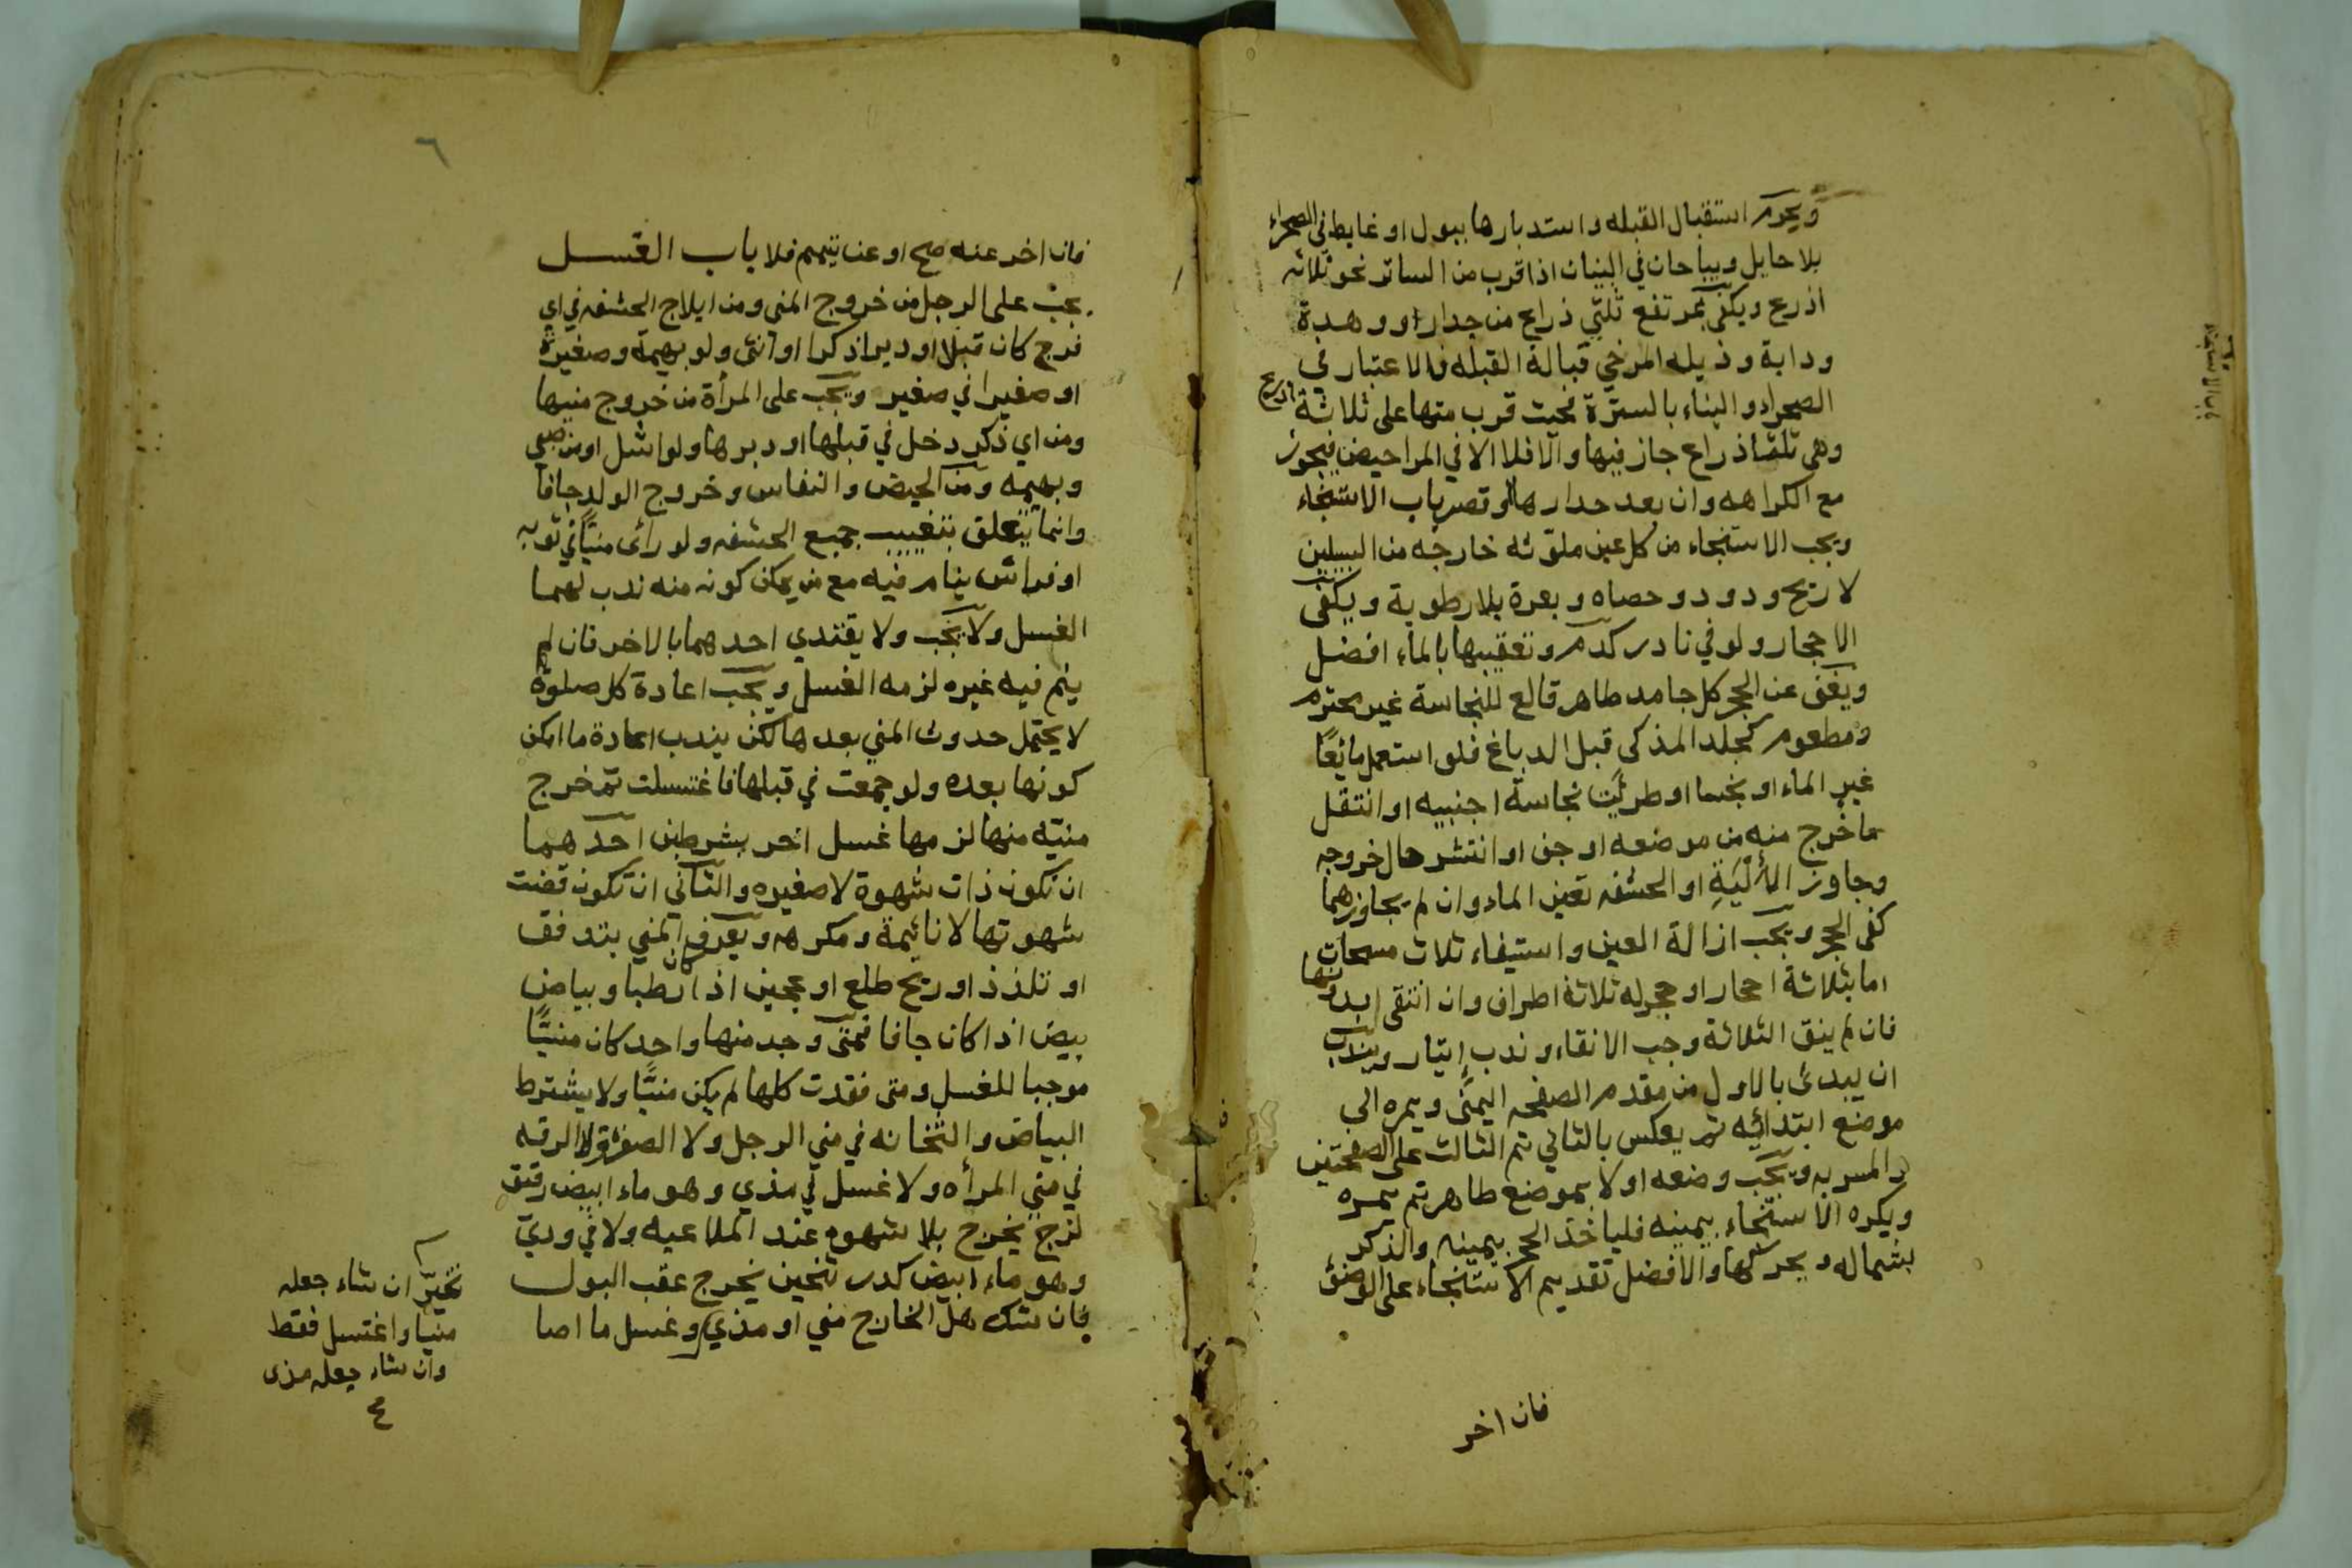 ويحرم استقبال القبله واستدبارها ببول او غايط في الصحراء
بلا حايل ويباحان في البنيان اذا قرب من الساتر نحو ثلاثه
اذرع ويكفي مرتفع ثلثي ذراع من جدار او وهدة
ودابة وذيله المرخي قبالة القبله فالاعتبار في
الصحراء والبناء بالسترة فحيث قرب منها على ثلاثة اذرع
وهي ثلثا ذراع جاز فيها والا فلا الا في المراحيض فيجوز
مع الكراهه وان بعد جدارها او قصر باب الاستنجاء
ويجب الاستنجاء من كل عين ملوثه خارجه من السبيلين
لا ريح ودود وحصاه وبعرة بلا رطوبة ويكفي
الاحجار ولو في نادر كدم وتعقيبها بالماء افضل
ويغني عن الحجر كل جامد طاهر قالع للنجاسة غير محترم
ومطعوم كجلد المذكى قبل الدباغ فلو استعمل مائعًا
غير الماء او نجسا او طرئت نجاسة اجنبيه او انتقل
ما خرج منه من موضعه او جف او انتشر حال خروجه
وجاوز الأليَةِ او الحشفه تعين الماء وان لم يجاوزهما
كفى الحجر ويجب ازالة العين واستيفاء ثلاث مسحات
اما بثلاثة احجار او حجر له ثلاثة اطراف وان انتقى بدونها
فان لم ينق الثلاثة وجب الانقاء وندب إيتار ويندب
ان يبدئ بالاول من مقدم الصفحه اليمنى ويمره الى
موضع ابتدائيه ثم يعكس بالثاني ثم الثالث على الصفحتين
والمسربه ويجب وضعه اولا بموضع طاهر ثم يمره
ويكره الاستنجاء بيمينه فلياخذ الحجر بيمينه والذكر
بشماله ويحركها والافضل تقديم الاستنجاء على الوضؤ
فان اخر
٦
فان اخر عنه صح او عن تيمم فلا باب الغسل
يجب على الرجل من خروج المنى ومن ايلاج الحشفه في اي
فرج كان قبلا او دبرا ذكرا او انثى ولو بهيمة وصغيرة
او صغيرا في صغير ويجب على المرأة من خروج منيها
ومن اي ذكر دخل في قبلها او دبرها ولو اشل او من صبي
وبهيمه ومن الحيض والنفاس وخروج الولد جافا
وانما يتعلق بتغييب جميع الحشفه ولو رأى منيًّا في ثوبه
او فراش ينام فيه مع من يمكن كونه منه ندب لهما
الغسل ولا يجب ولا يقتدي احدهما بالاخر فان لم
ينم فيه غيره لزمه الغسل ويجب اعادة كل صلوة
لا يحتمل حدوث المني بعدها لكن يندب اعادة ما امكن
كونها بعده ولو جمعت في قبلها فاغتسلت ثم خرج
منيه منها لزمها غسل اخر بشرطين احدهما
ان تكون ذات شهوة لا صغيره والثاني ان تكون قضت
شهوتها لا نائيمة ومكرهه ويعرف المني بتدفق
او تلذذ او ريح طلع او عجين اذا كان رطبا وبياض
بيض اذا كان جافا فمتى وجد منها واحد كان منيًّا
موجبا للغسل ومتى فقدت كلها لم يكن منيًّا ولا يشترط
البياض والثخانه في مني الرجل ولا الصفرة ولا الرقه
في مني المرأه ولا غسل في مذي وهو ماء ابيض رقيق
لزج يخرج بلا شهوه عند الملاعبه ولا في ودي
وهو ماء ابيض كدر ثخين يخرج عقب البول
فان شك هل الخارج مني او مذي وغسل ما اصا
تخيّر ان شاء جعله
منيا واغتسل فقط
وان شاء جعله مذى